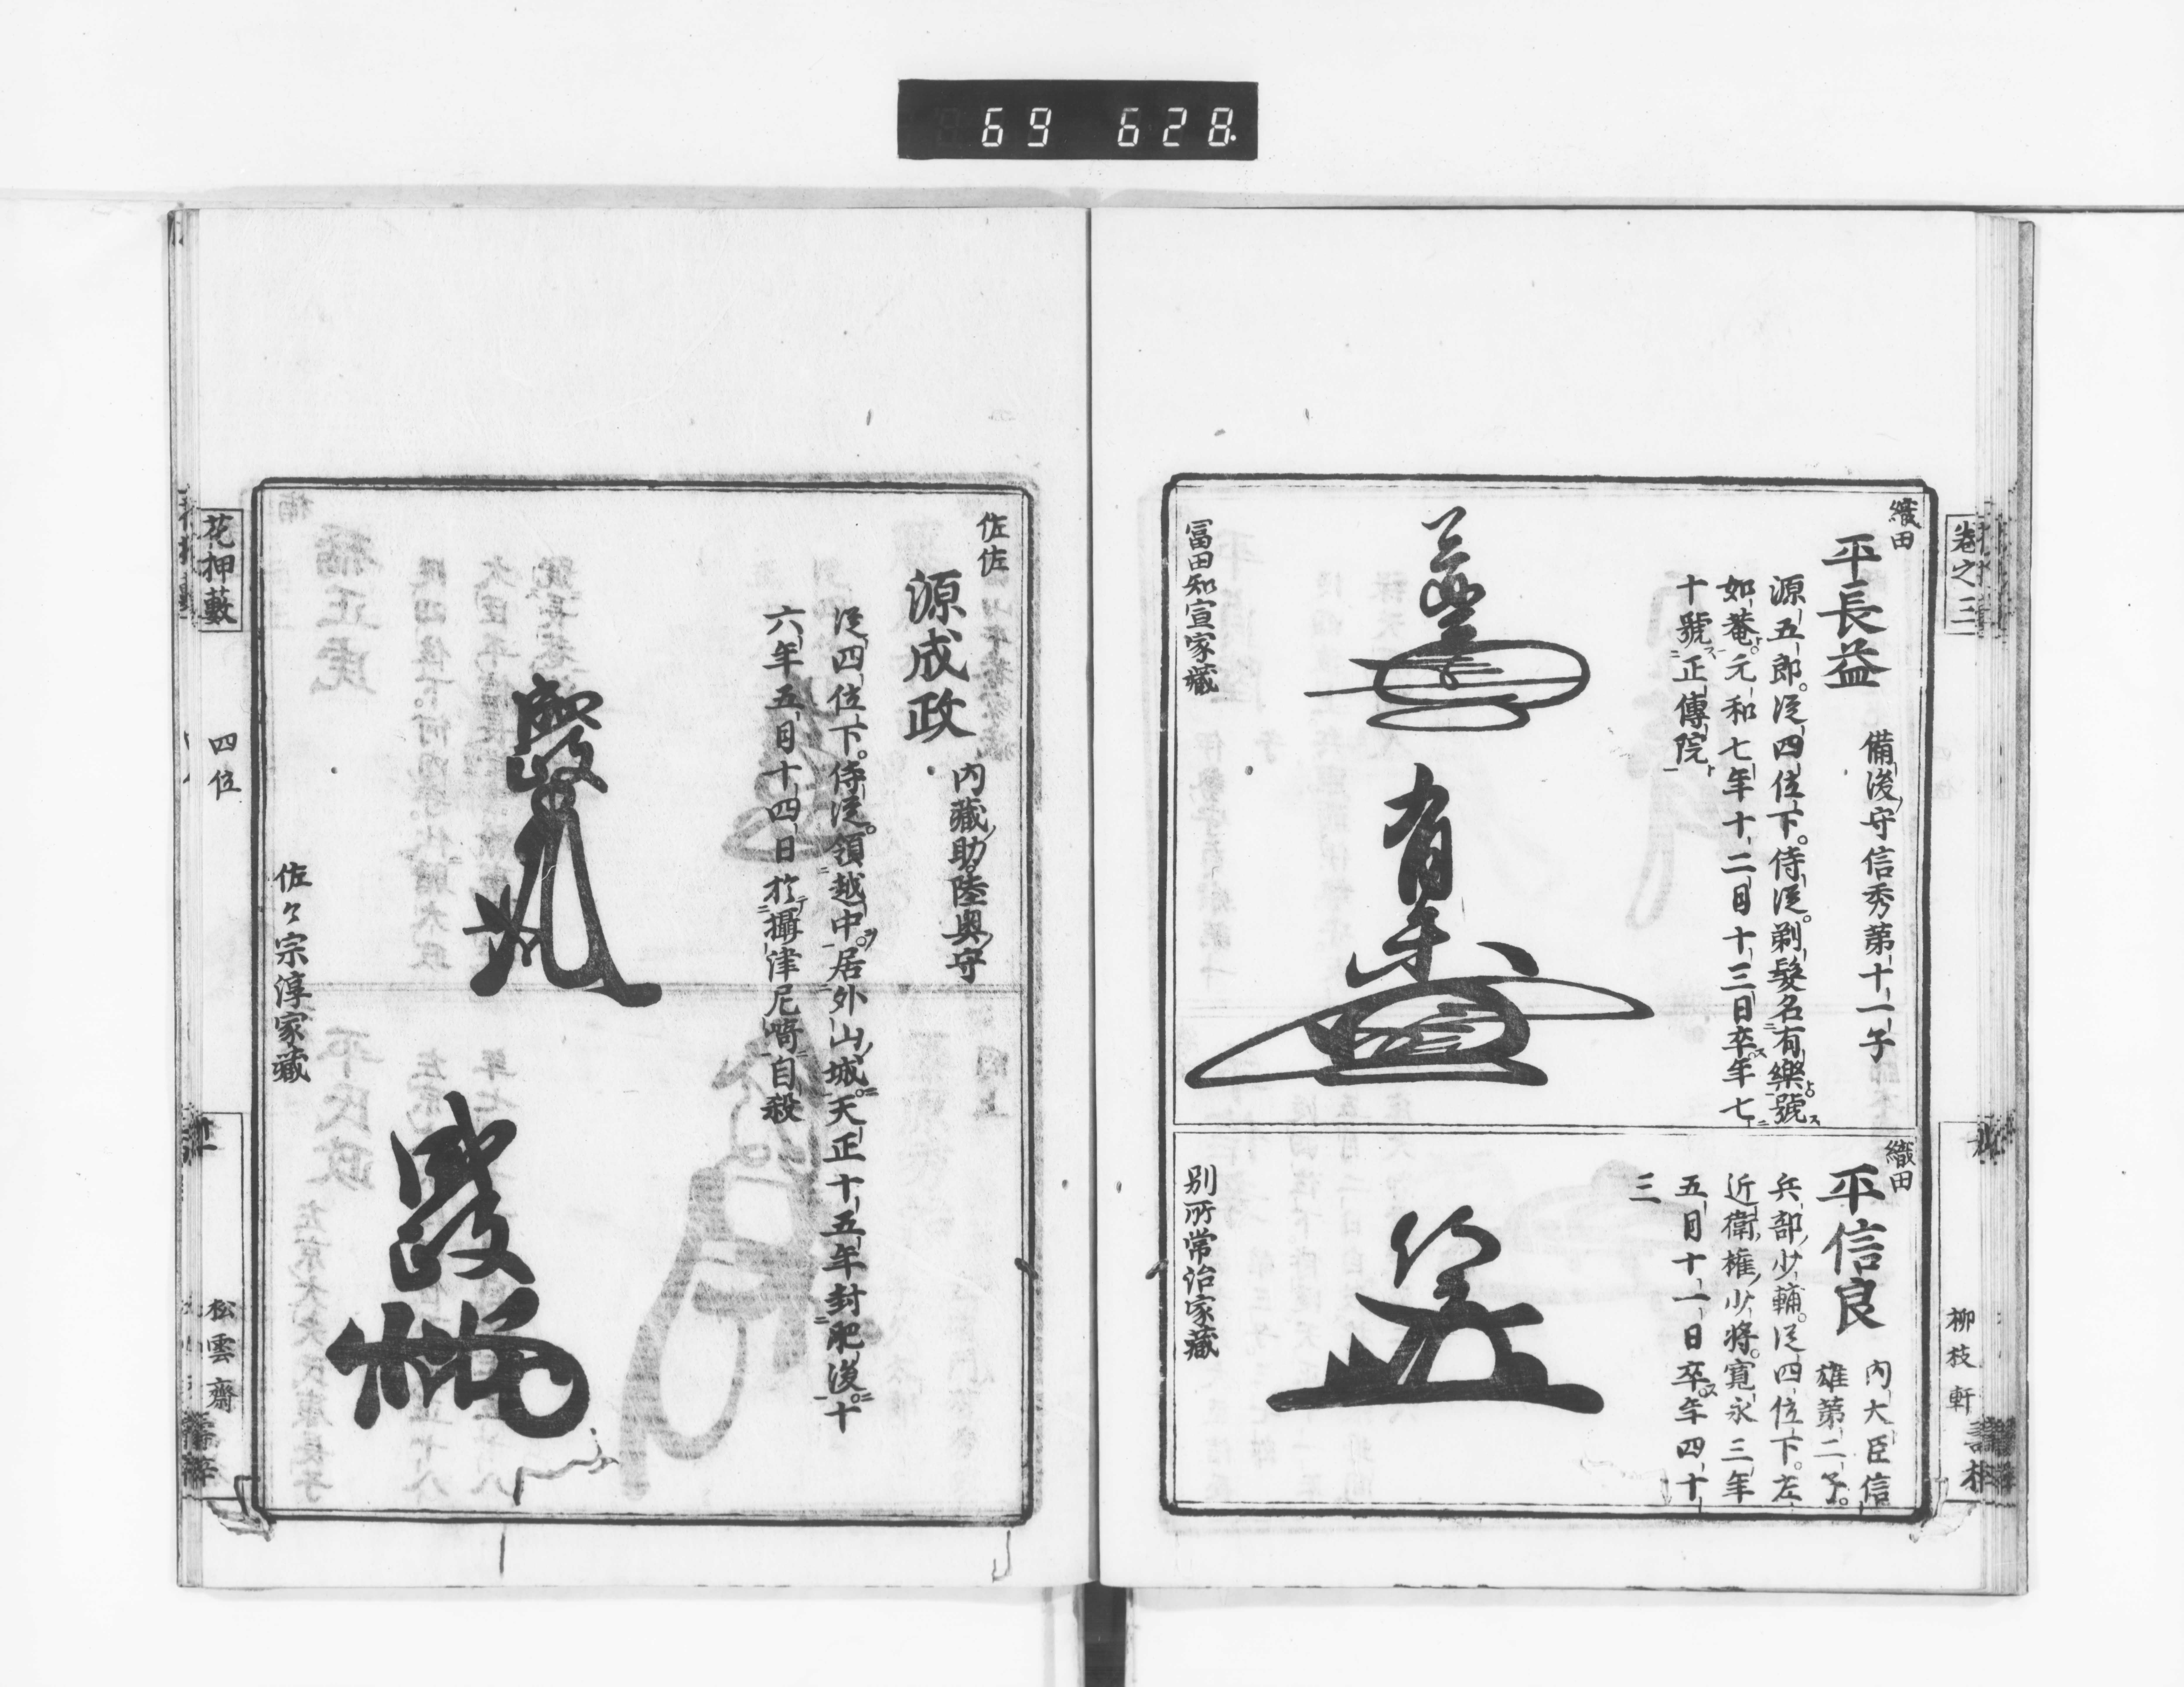 69 628
卷之三
柳枝軒
織田
平長益
備後守信秀第十一子
源五郎。從四位下。侍從。剃髮名有樂號
如菴。元和七年十二月十三日卒年七
十號正傳院
冨田知宣家藏
織田
平信良
內大臣信
雄第二子。
兵部少輔。從四位下。左
近衛權少將。寛永三年
五月十一日卒年四十
三
別所常治家藏
佐佐
源成政
內藏助。陸奥守
從四位下。侍從。領越中。居外山城。天正十五年封肥後。十
六年五月十四日於攝津尼﨑自殺
佐々宗淳家藏
花押藪
四位
松雲齋